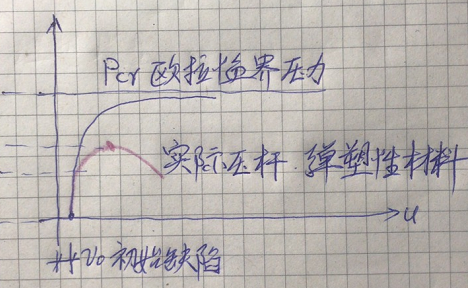 Pcr 欧拉临界压力
实际压杆 弹塑性材料
u
v₀ 初始缺陷